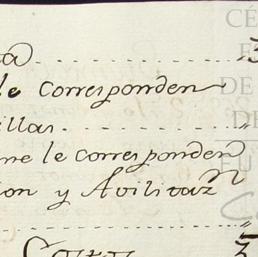 le corresponden
illas
me le corresponden
ion y Avilitaz.n
Costas 3
CÉ
E
DE
DE